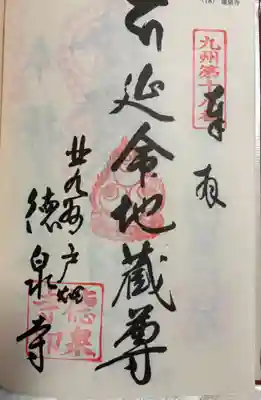 九州第十八番
奉拝
延命地蔵尊
北九州戸畑
徳泉寺
徳泉
寺印